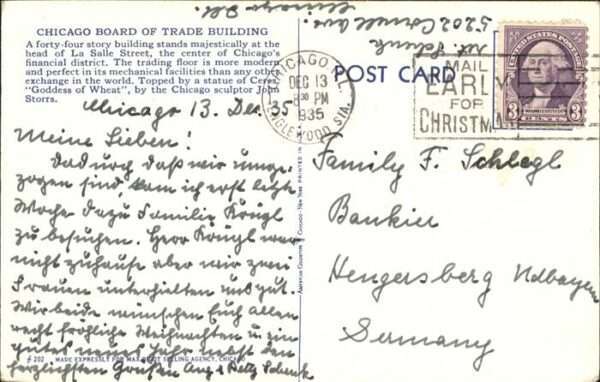 CHICAGO BOARD OF TRADE BUILDING
A forty-four story building stands majestically at the
head of La Salle Street, the center of Chicago's
financial district. The trading floor is more modern
and perfect in its mechanical facilities than any other
exchange in the world. Topped by a statue of Ceres
"Goddess of Wheat", by the Chicago sculptor John
Storrs.
Chicago 13. Dec. 35
Meine Lieben!
Dadurch daß wir umge-
zogen sind, kam ich erst letzte
Woche dazu Familie Köugl
zu besuchen. Herr Köugl war
nicht zuhause aber wir zwei
Frauen unterhielten uns gut.
Wir beide wünschen Euch allen
recht fröhliche Weihnachten u. ein
gutes neues Jahr nebst den
herzlichsten Grüßen Aug & Betty Schenk
202 MADE EXPRESSLY FOR MAX SELLING AGENCY, CHICAGO
5202 Cornell Ave.
Chicago Ill.
POST CARD
CHICAGO, ILL.
DEC 13
8 30 PM
1935
ENGLEWOOD STA.
MAIL
EARLY
FOR
CHRISTMAS
UNITED STATES POSTAGE
3 3
Family F. Schlegl
Bankier
Hengersberg Ndbayern
Germany